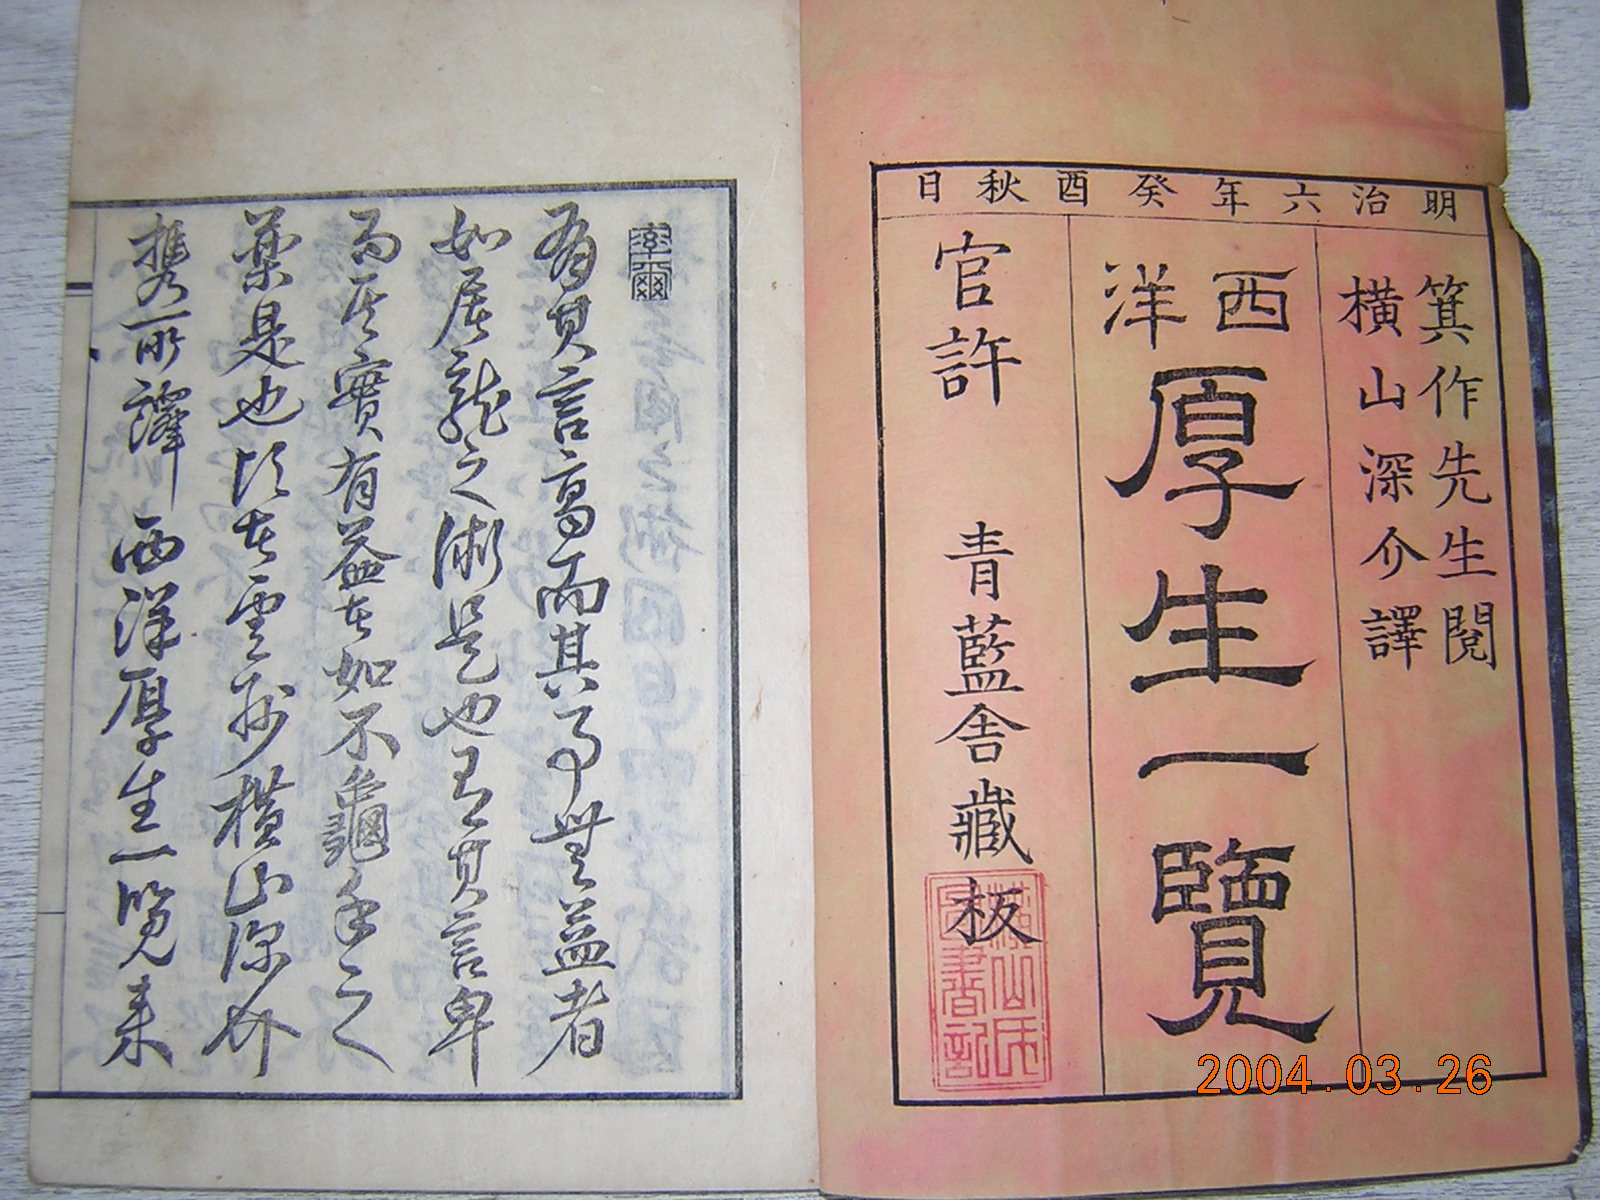 明治六年癸酉秋日
箕作先生閱
橫山深介譯
西洋
厚生一覽
官許 青藍舍藏板
率爾
有其言高而其事無益者
如屠龍之術是也有其言卑
而其實有益者如不龜手之
藥是也頃者雲形橫山深介
携所譯西洋厚生一覽来
2004.03.26